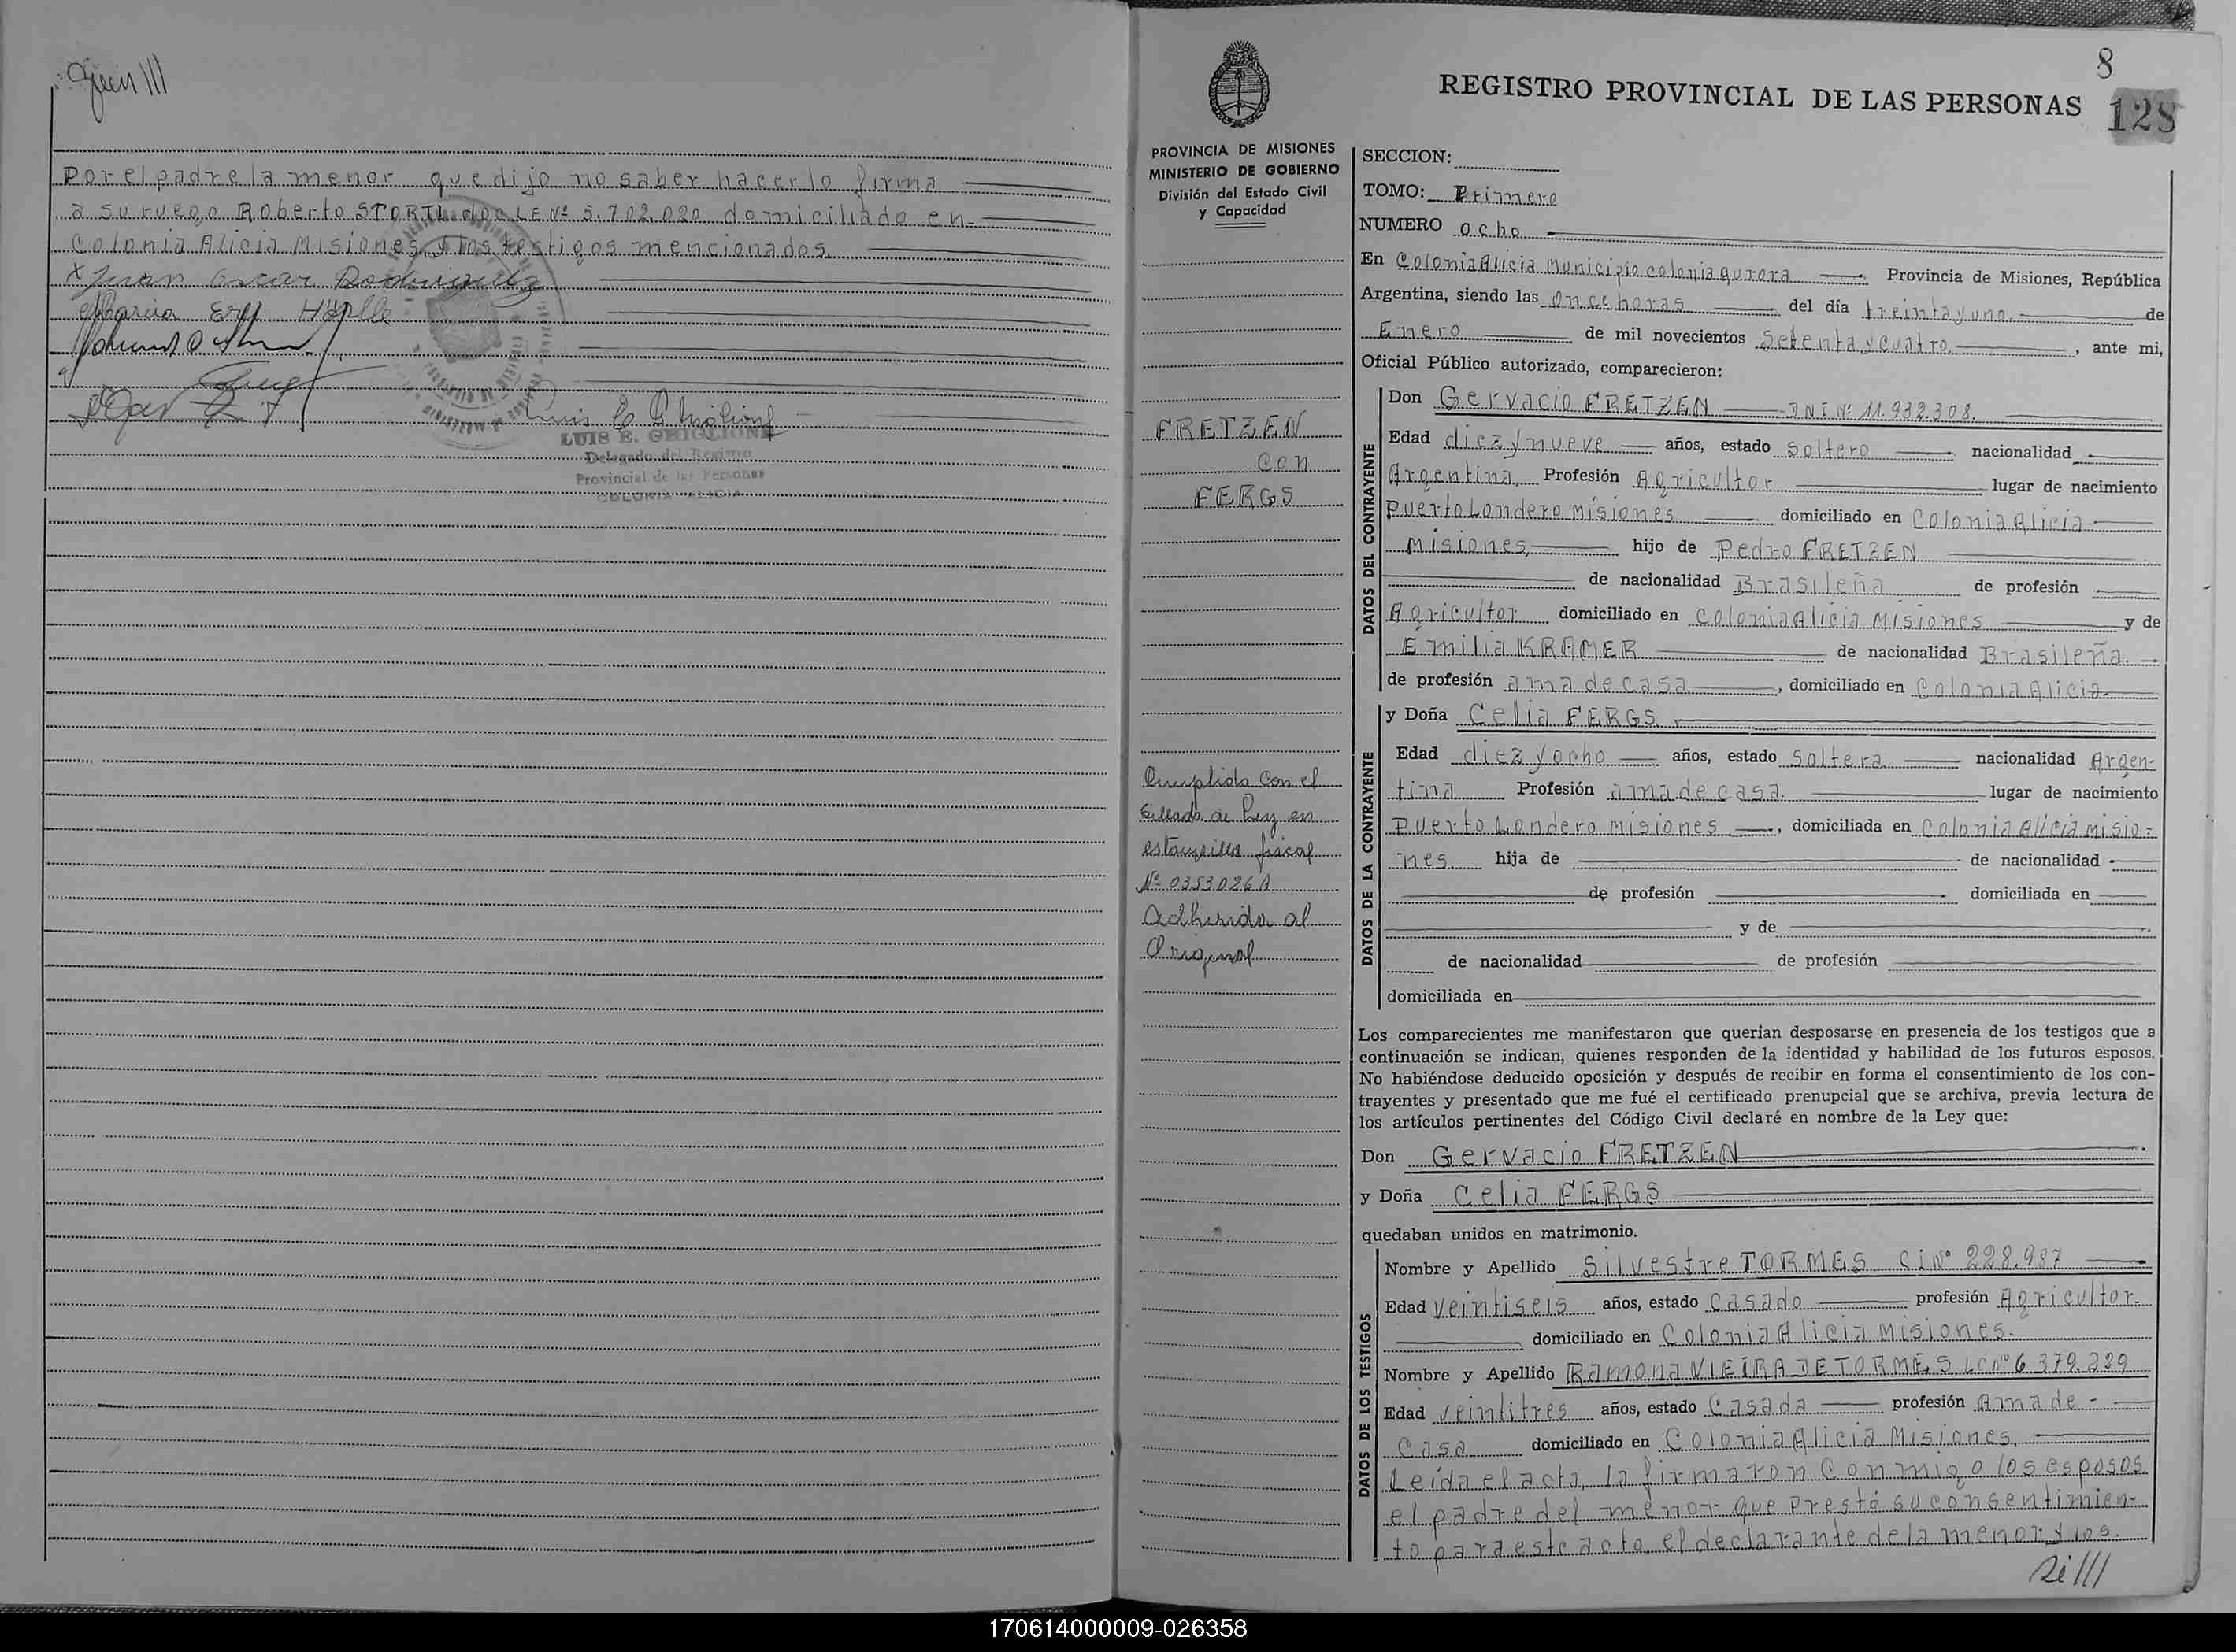 Por el padre la menor que dijo no saber hacerlo firma
a su ruego Roberto STORTI doc LE Nº 5.702.020 domiciliado en
Colonia Alicia Misiones y los testigos mencionados.
x Juan Oscar Rodriguez
LUIS E. GHIGLIONE
Delegado del Registro
Provincial de las Personas
COLONIA ALICIA
8
REGISTRO PROVINCIAL DE LAS PERSONAS
128
PROVINCIA DE MISIONES
MINISTERIO DE GOBIERNO
División del Estado Civil
y Capacidad
FRETZEN
con
FERGS
Cumplido con el
Sellado de Ley en
estampilla fiscal
Nº 0353026A
Adherida al
Original
SECCION:
TOMO: Primero
NUMERO ocho
En Colonia Alicia Municipio colonia aurora Provincia de Misiones, República
Argentina, siendo las once horas del día treinta y uno de
Enero de mil novecientos setenta y cuatro, ante mi,
Oficial Público autorizado, comparecieron:
DATOS DEL CONTRAYENTE
Don Gervacio FRETZEN D N I Nº 11.932.308.
Edad diez y nueve años, estado soltero nacionalidad
Argentina Profesión Agricultor lugar de nacimiento
Puerto Londero Misiones domiciliado en Colonia Alicia
Misiones, hijo de Pedro FRETZEN
de nacionalidad Brasileña de profesión
Agricultor domiciliado en Colonia Alicia Misiones y de
Emilia KRAMER de nacionalidad Brasileña.
de profesión ama de casa, domiciliado en Colonia Alicia
DATOS DE LA CONTRAYENTE
y Doña Celia FERGS
Edad diez y ocho años, estado soltera nacionalidad Argen-
tina Profesión ama de casa. lugar de nacimiento
Puerto Londero Misiones, domiciliada en Colonia Alicia Misio-
nes. hija de de nacionalidad
de profesión domiciliada en
y de
de nacionalidad de profesión
domiciliada en
Los comparecientes me manifestaron que querían desposarse en presencia de los testigos que a
continuación se indican, quienes responden de la identidad y habilidad de los futuros esposos.
No habiéndose deducido oposición y después de recibir en forma el consentimiento de los con-
trayentes y presentado que me fué el certificado prenupcial que se archiva, previa lectura de
los artículos pertinentes del Código Civil declaré en nombre de la Ley que:
Don Gervacio FRETZEN
y Doña Celia FERGS
quedaban unidos en matrimonio.
DATOS DE LOS TESTIGOS
Nombre y Apellido Silvestre TORMES CI Nº 228.987
Edad veintiseis años, estado casado profesión Agricultor.
domiciliado en Colonia Alicia Misiones.
Nombre y Apellido Ramona VIEIRA DE TORMES LC Nº 6 379.229
Edad veintitres años, estado casada profesión Ama de -
casa domiciliado en Colonia Alicia Misiones.
Leída el acta, la firmaron conmigo los esposos
el padre del menor que prestó su consentimien-
to para este acto, el declarante de la menor y los.
170614000009-026358